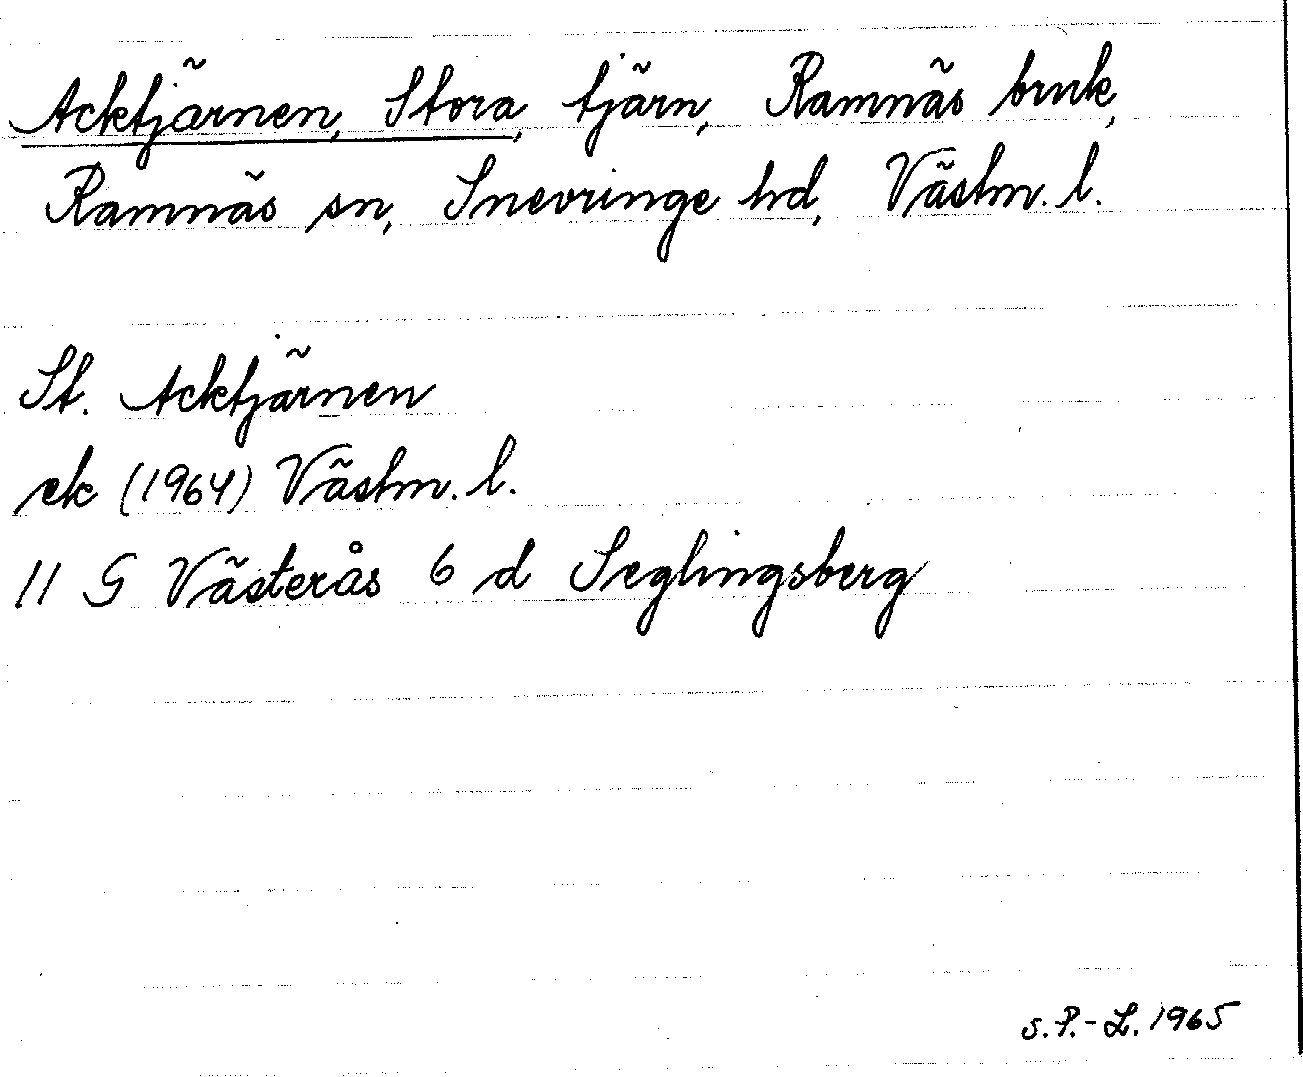 Acktjärnen, Stora, tjärn, Ramnäs bruk,
Ramnäs sn, Snevringe hd, Västm. l.
St. Acktjärnen
ek (1964) Västm. l.
11 G Västerås 6 d Seglingsberg
S.P.-L. 1965